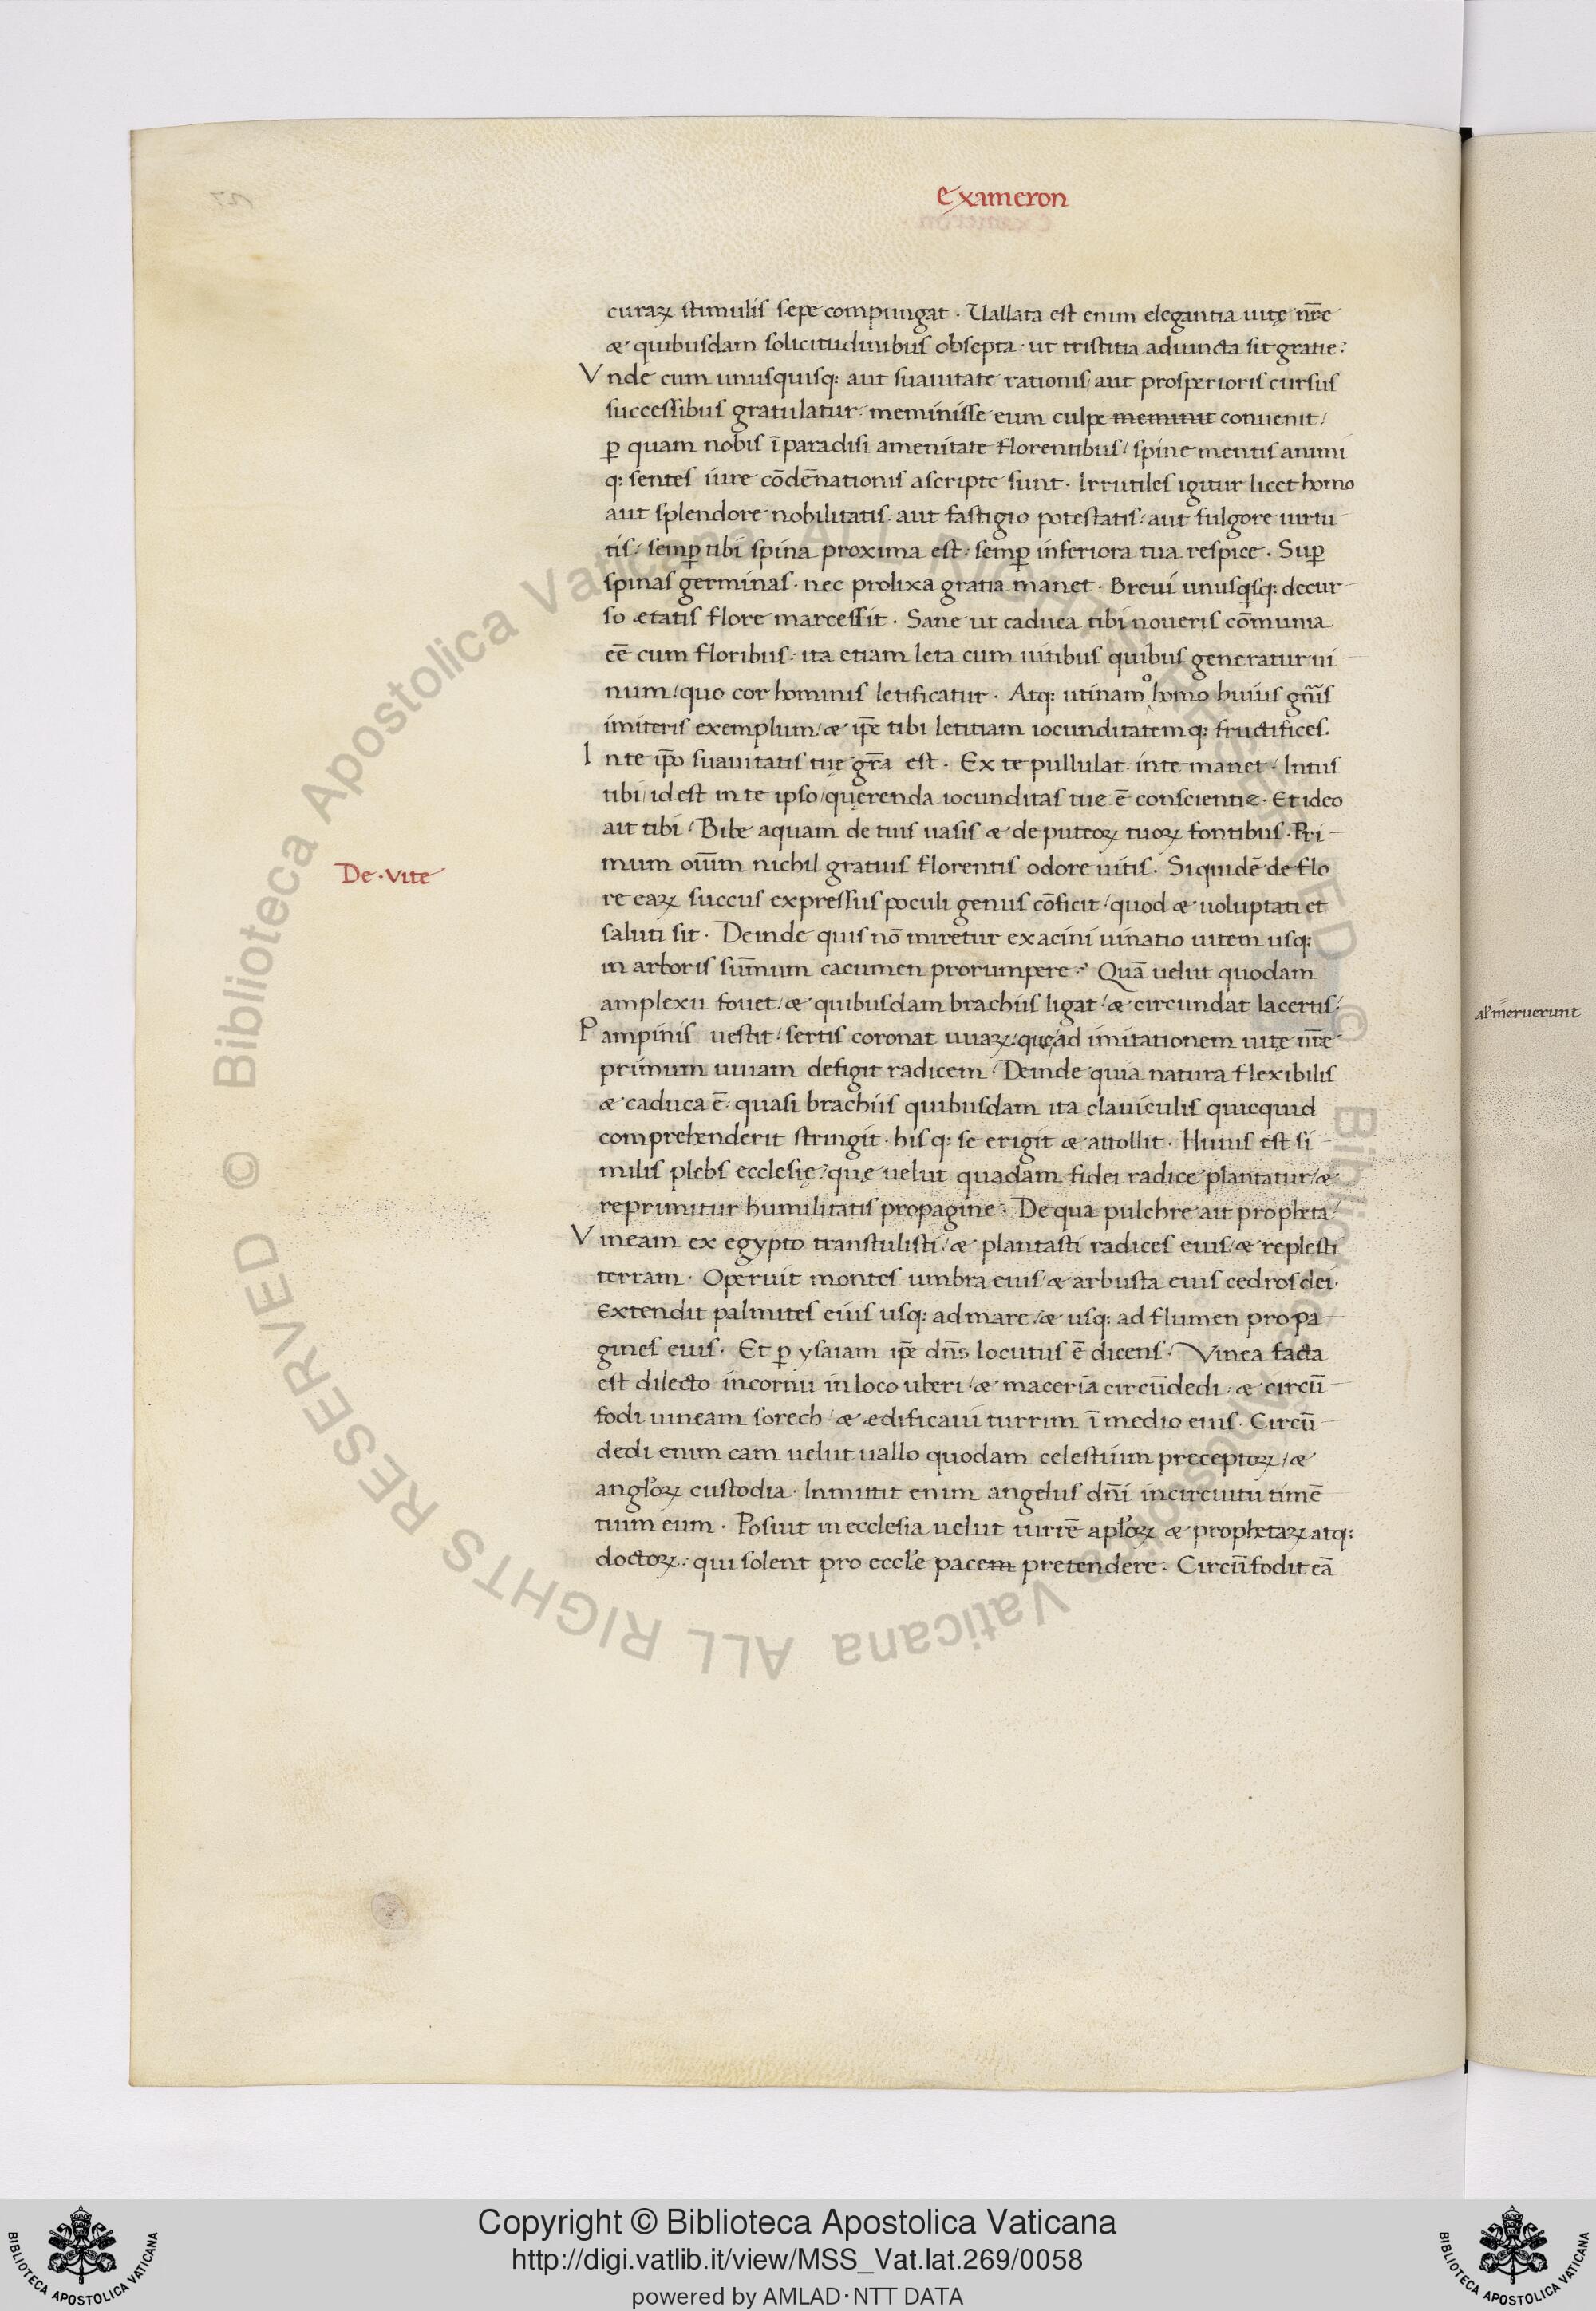 Exameron
curaꝝ stimulis sepe compungat · Uallata est enim elegantia uitę nr̄e
& quibusdam solicitudinibus obsepta · ut tristitia adiuncta sit gratie :
Vnde cum unusquisq: aut suauitate rationis / aut prosperioris cursus
successibus gratulatur · meminisse eum culpe meminit conuenit /
ꝑ quam nobis ī paradisi amenitate florentibus / spine mentis animi
q: sentes iure cōdēnationis ascripte sunt · Irrutiles igitur licet homo
aut splendore nobilitatis · aut fastigio potestatis · aut fulgore uirtu
tis / semꝑ tibi spina proxima est · semꝑ inferiora tua respice · Suꝑ
spinas germinas · nec prolixa gratia manet · Breui unusq̄sq: decur
so ætatis flore marcessit · Sane ut caduca tibi noueris cōmunia
eē cum floribus · ita etiam leta cum uitibus quibus generatur ui
num / quo cor hominis letificatur · Atq: utinam o homo huius gn̄is
imiteris exemplum / & ip̄e tibi letitiam iocunditatem q: fructifices.
In te ip̄o suauitatis tuę gr̄a est · Ex te pullulat · in te manet · Intus
tibi / id est in te ipso / quęrenda iocunditas tue ē conscientię · Et ideo
ait tibi / Bibe aquam de tuis uasis & de puteoꝝ tuoꝝ fontibus · Pri
De · vite
mum oīum nichil gratius florentis odore uitis · Siquidē de flo
re eaꝝ succus expressus poculi genus cōficit / quod & uoluptati et
saluti sit · Deinde quis nō miretur ex acini uinatio uitem usq:
in arboris sum̄um cacumen prorumpere · Quā uelut quodam
amplexu fouet / & quibusdam brachiis ligat / & circundat lacertis /
Pampinis uestit / sertis coronat uuaꝝ / quę ad imitationem uitę nr̄e
primum uiuam defigit radicem / Deinde quia natura flexibilis
& caduca ē · quasi brachiis quibusdam ita clauiculis quicquid
comprehenderit stringit · his q: se erigit & attollit · Huius est si
milis plebs ecclesię / quę uelut quadam fidei radice plantatur / &
reprimitur humilitatis propagine · De qua pulchre ait propheta /
Vineam ex egypto transtulisti / & plantasti radices eius / & replesti
terram · Operuit montes umbra eius / & arbusta eius cedros dei ·
Extendit palmites eius usq: ad mare / & usq: ad flumen propa
gines eius · Et ꝑ ysaiam ip̄e dn̄s locutus ē dicens / Vinea facta
est dilecto in cornu in loco uberi / & maceria circūdedi · & circū
fodi uineam sorech / & ædificaui turrim ī medio eius · Circū
dedi enim eam uelut uallo quodam celestium preceptoꝝ / &
angl̓oꝝ custodia · Inmittit enim angelus dn̄i in circuitu timē
tium eum · Posuit in ecclesia uelut turrē apl̓oꝝ & prophetaꝝ atq:
doctoꝝ · qui solent pro eccl̓e pacem pretendere · Circūfodit eā
al' meruerunt
Copyright © Biblioteca Apostolica Vaticana
http://digi.vatlib.it/view/MSS_Vat.lat.269/0058
powered by AMLAD·NTT DATA
BIBLIOTECA APOSTOLICA VATICANA
BIBLIOTECA APOSTOLICA VATICANA
© Biblioteca Apostolica Vaticana ALL RIGHTS RESERVED © Biblioteca Apostolica Vaticana ALL RIGHTS RESERVED